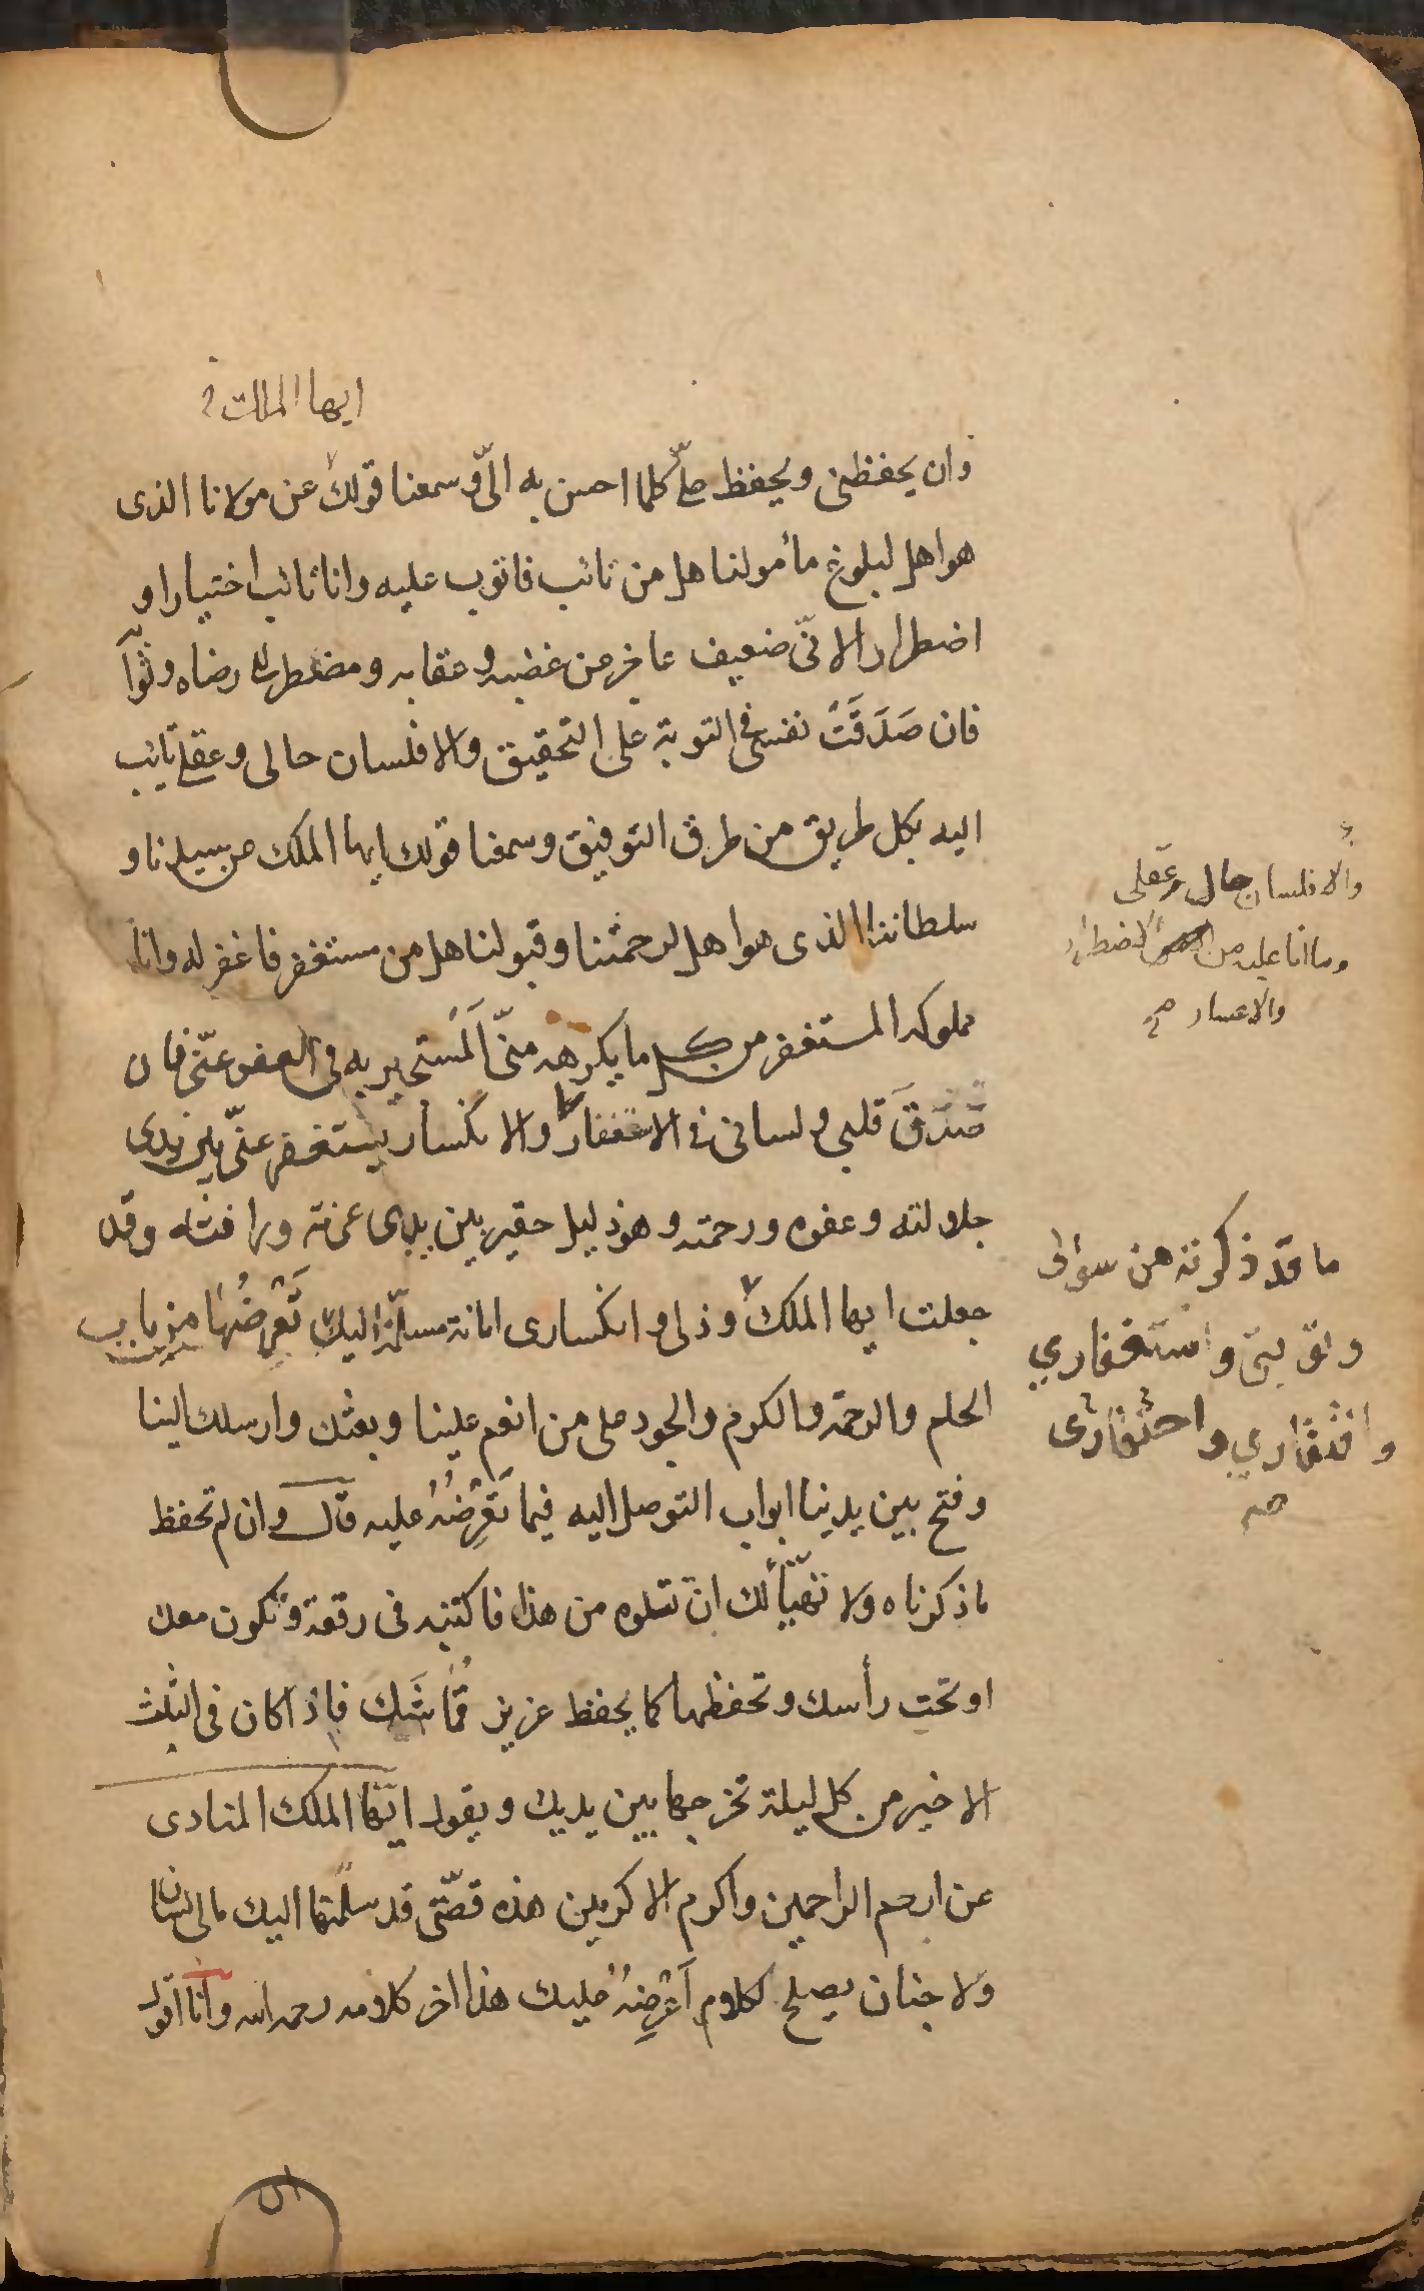 ايها الملك
وان يحفظنى ويحفظ علىّ كلما احسن به الىّ وسمعنا قولك عن مولانا الذى
هو اهل لبلوغ مأمولنا هل من تائب فاتوب عليه وانا تائب اختيارا و
اضطرارا لانّى ضعيف عاجز عن غضبه وعقابه ومضطر الى رضاه وثوابه
فان صَدَقَتْ نفسى فى التوبة على التحقيق والا فلسان حالى وعقلى تايب
اليه بكل طريق من طرق التوفيق وسمعنا قولك ايها الملك عن سيدنا و
سلطاننا الذى هو اهل لرحمتنا وقبولنا هل من مستغفر فاغفر له وانا
مملوكه المستغفر من كل ما يكرهه منّى المستجير به فى العفو عنّى فان
صَدَقَ قلبى ولسانى فى الاستغفار والا نكسار يستغفر عنّى بين يدى
جلالته وعفوه ورحمته وهو ذليل حقير بين يدى عزته ورافته وقد
جعلت ايها الملك وذلى وانكسارى امانة مسلّمة اليك تَعْرِضُها من باب
الحلم والرحمة والكرم والجود على من انعم علينا وبعثك وارسلك الينا
وفتح بين يدينا ابواب التوصل اليه فيما تَعْرِضُهُ عليه قال وان لم تحفظ
ماذكرناه ولا تهيّأ لك ان تتلوه من هذا فاكتبه فى رقعة وتكون معك
او تحت رأسك وتحفظها كما يحفظ عزيز قُمَاشَك فاذا كان فى الثلث
الاخير من كل ليلة تخرجها بين يديك ويقول ايّها الملك المنادى
عن ارحم الراحمين واكرم الاكرمين هذه قصّتى قد سلّمتها اليك مالى لسان
ولا جنان يصلح لكلام اَعْرِضُهُ عليك هذا اخر كلامه رحمه الله وانا اقول
والا فلسان حالى وعقلى
وما انا عليه من الاضطرار
والاعسار صح
ما قد ذكرته من سؤالى
وتوبتى واستغفاري
وافتقاري واحتقارى
صح